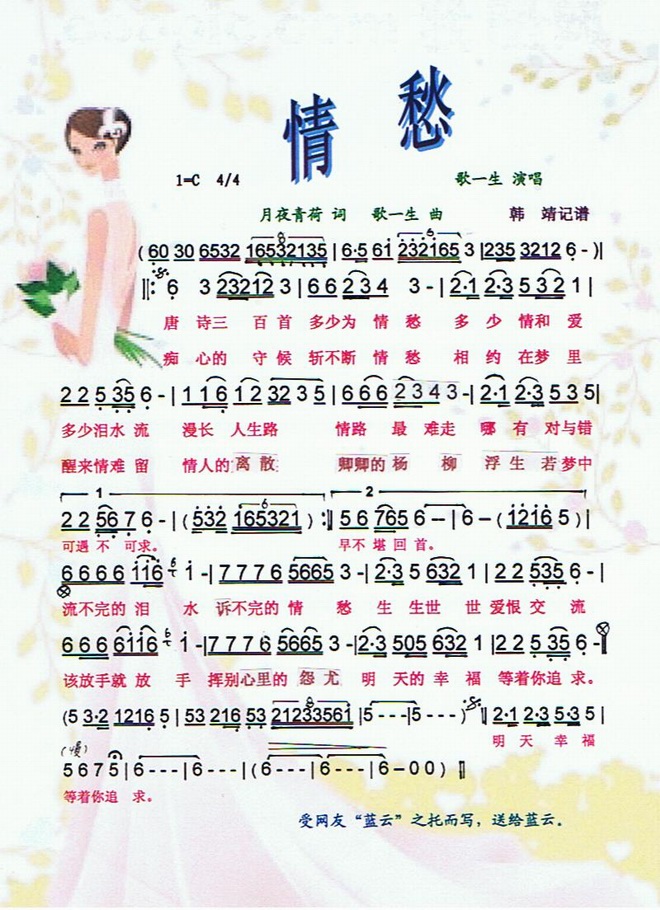 情愁
1=C 4/4 歌一生 演唱
月夜青荷 词 歌一生 曲 韩 靖记谱
(60 30 6532 16532135 | 6·5 61 232165 3 |235 3212 6 - )|
6 3 23212 3 | 6 6 2 3 4 3 - | 2·1 2·3 5 3 2 1 |
唐 诗三 百 首 多少为 情 愁 多 少 情和 爱
痴 心的 守 候 斩不断 情 愁 相 约 在梦 里
2 2 5 35 6 - | 1 1 6 1 2 32 3 5 | 6 6 6 2 3 4 3 -| 2·1 2·3 5 3 5|
多少泪水 流 漫长 人生路 情路 最 难走 哪 有 对与错
醒来情难 留 情人的 离 散 卿卿的 杨 柳 浮 生 若 梦中
1 2
2 2 56 7 6 - | (532 165321 ) :|| 5 6 765 6 - - | 6 - (1216 5 ) |
可遇 不 可求。 早不 堪 回 首。
6 6 6 6 116 1 -| 7 7 7 6 5665 3 -| 2·3 5 632 1 | 2 2 535 6 - |
流不完的 泪 水 诉不完的 情 愁 生 生世 世 爱恨 交 流
6 6 6 6116 1 -|7 7 7 6 5665 3 -|2·3 505 632 1 |2 2 5 35 6 -||
该放手就 放 手 挥别心里的 怨 尤 明 天的 幸 福 等着你追 求。
(5 3·2 1216 5 | 53 216 53 21233561 |5 - - -|5 - - - ) || 2·1 2·3 5·3 5 |
明 天 幸 福
(慢)
5 6 7 5 | 6 - - - | 6 - - - | ( 6 - - - | 6 - - - | 6 - 0 0 ) ||
等着你追 求。
受网友“蓝云”之托而写，送给蓝云。